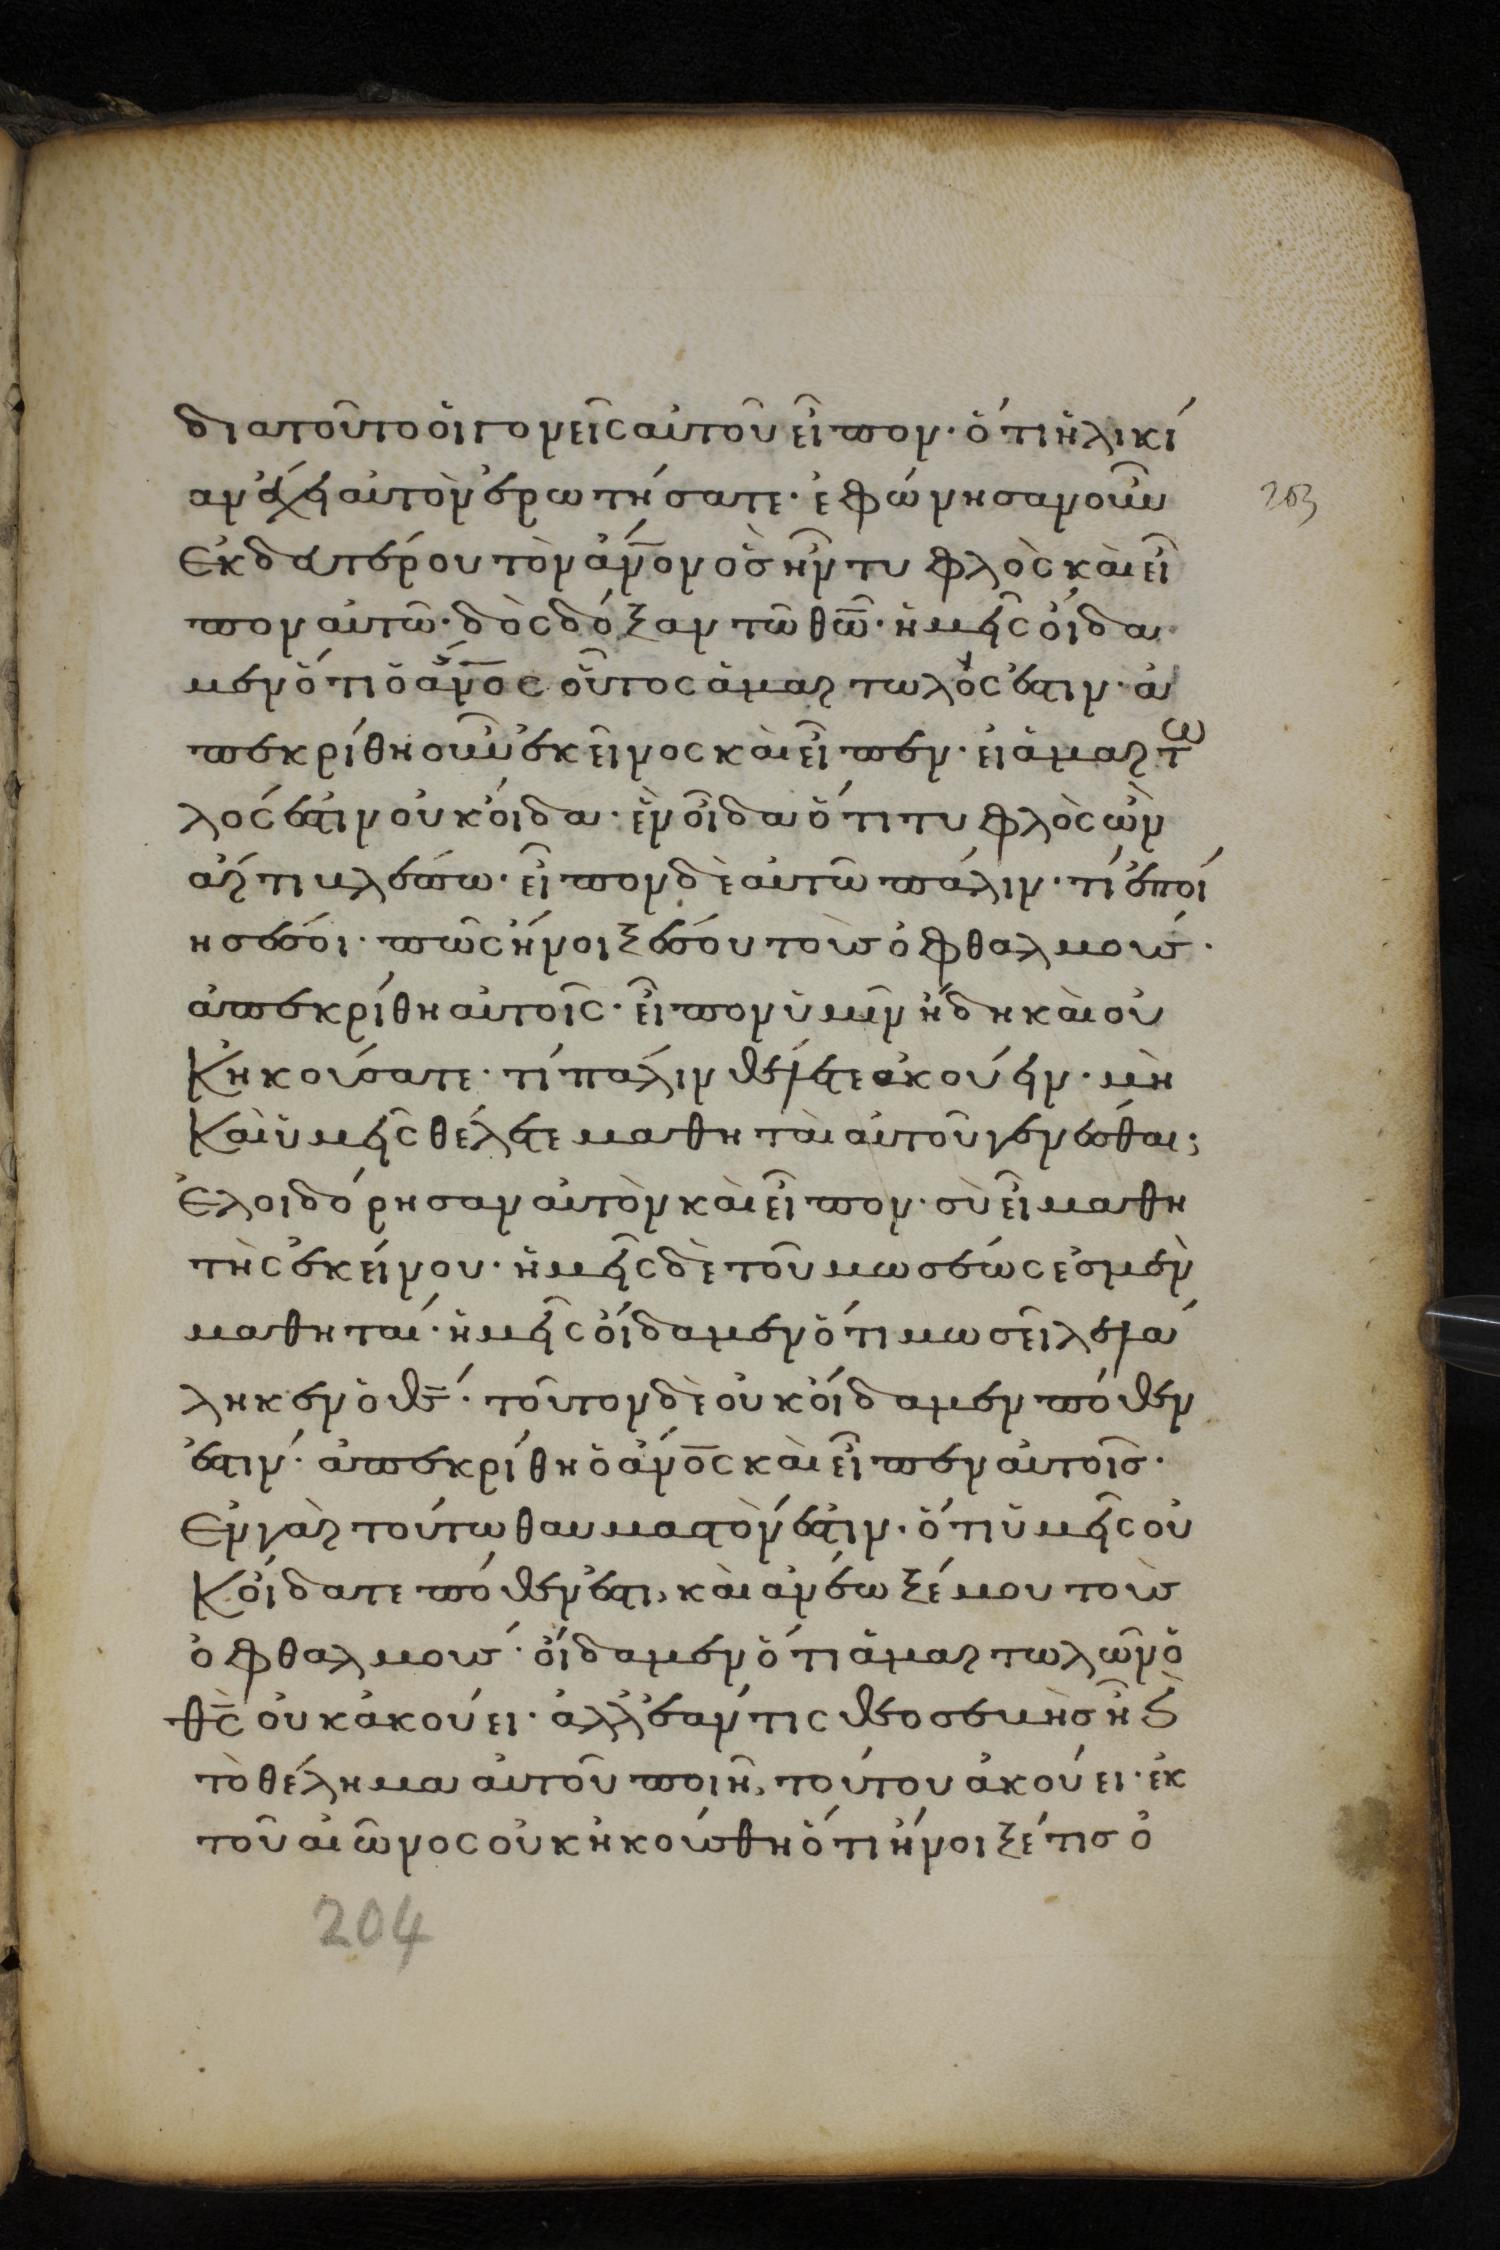 διατοῦτο οἱ γονεῖς αὐτοῦ εἶπον· ὅτι ἡλικί
αν ἔχει αὐτὸν ἐρωτήσατε· ἐφώνησαν οὖν
Ἐκ δευτέρου τὸν ἄνον ὃς ἦν τυφλὸς καὶ εἶ
πον αὐτῶ· δὸς δόξαν τῶ θω· ἡμεῖς οἴδα
μεν ὅτι ὁ ανος οὗτος ἁμαρτωλός ἐστιν· ἀ
πεκρίθη οὖν ἐκεῖνος καὶ εἶπεν· εἰ ἁμαρτω
λός ἐστιν οὐκ οἶδα· ἓν οἶδα ὅτι τυφλὸς ὢν
ἄρτι βλέπω· εἶπον δὲ αὐτῶ πάλιν· τί ἐποί
ησέ σοι· πῶς ἤνοιξέ σου τοὺς ὀφθαλμούς·
ἀπεκρίθη αὐτοῖς· εἶπον ὑμῖν ἤδη καὶ οὐ
Κ ἠκούσατε· τί πάλιν θέλετε ἀκούειν· μὴ
Καὶ ὑμεῖς θέλετε μαθηταὶ αὐτοῦ γενέσθαι;
Ἐλοιδόρησαν αὐτὸν καὶ εἶπον· σὺ εἶ μαθη
τὴς ἐκείνου· ἡμεῖς δὲ τοῦ μωσέως ἐσμὲν
μαθηταί· ἡμεῖς οἴδαμεν ὅτι μωσεῖ λελά
ληκεν ὁ θς· τοῦτον δὲ οὐκ οἴδαμεν πόθεν
ἐστίν· ἀπεκρίθη ὁ ἄνος καὶ εἶπεν αὐτοῖς·
Ἐν γὰρ τούτω θαυμαστόν ἐστιν· ὅτι ὑμεῖς οὐ
Κ οἴδατε πόθεν ἐστι, καὶ ἀνέωξέ μου τοὺς
ὀφθαλμούς· οἴδαμεν ὅτι ἁμαρτωλῶν ὁ
θς οὐκ ἀκούει· ἀλλ' ἐάν τις θεοσεβὴς ἦ καὶ
τὸ θέλημα αὐτοῦ ποιῆ, τούτου ἀκούει· ἐκ
τοῦ αἰῶνος οὐκ ἠκούσθη ὅτι ἤνοιξέ τις ὀ
203
204